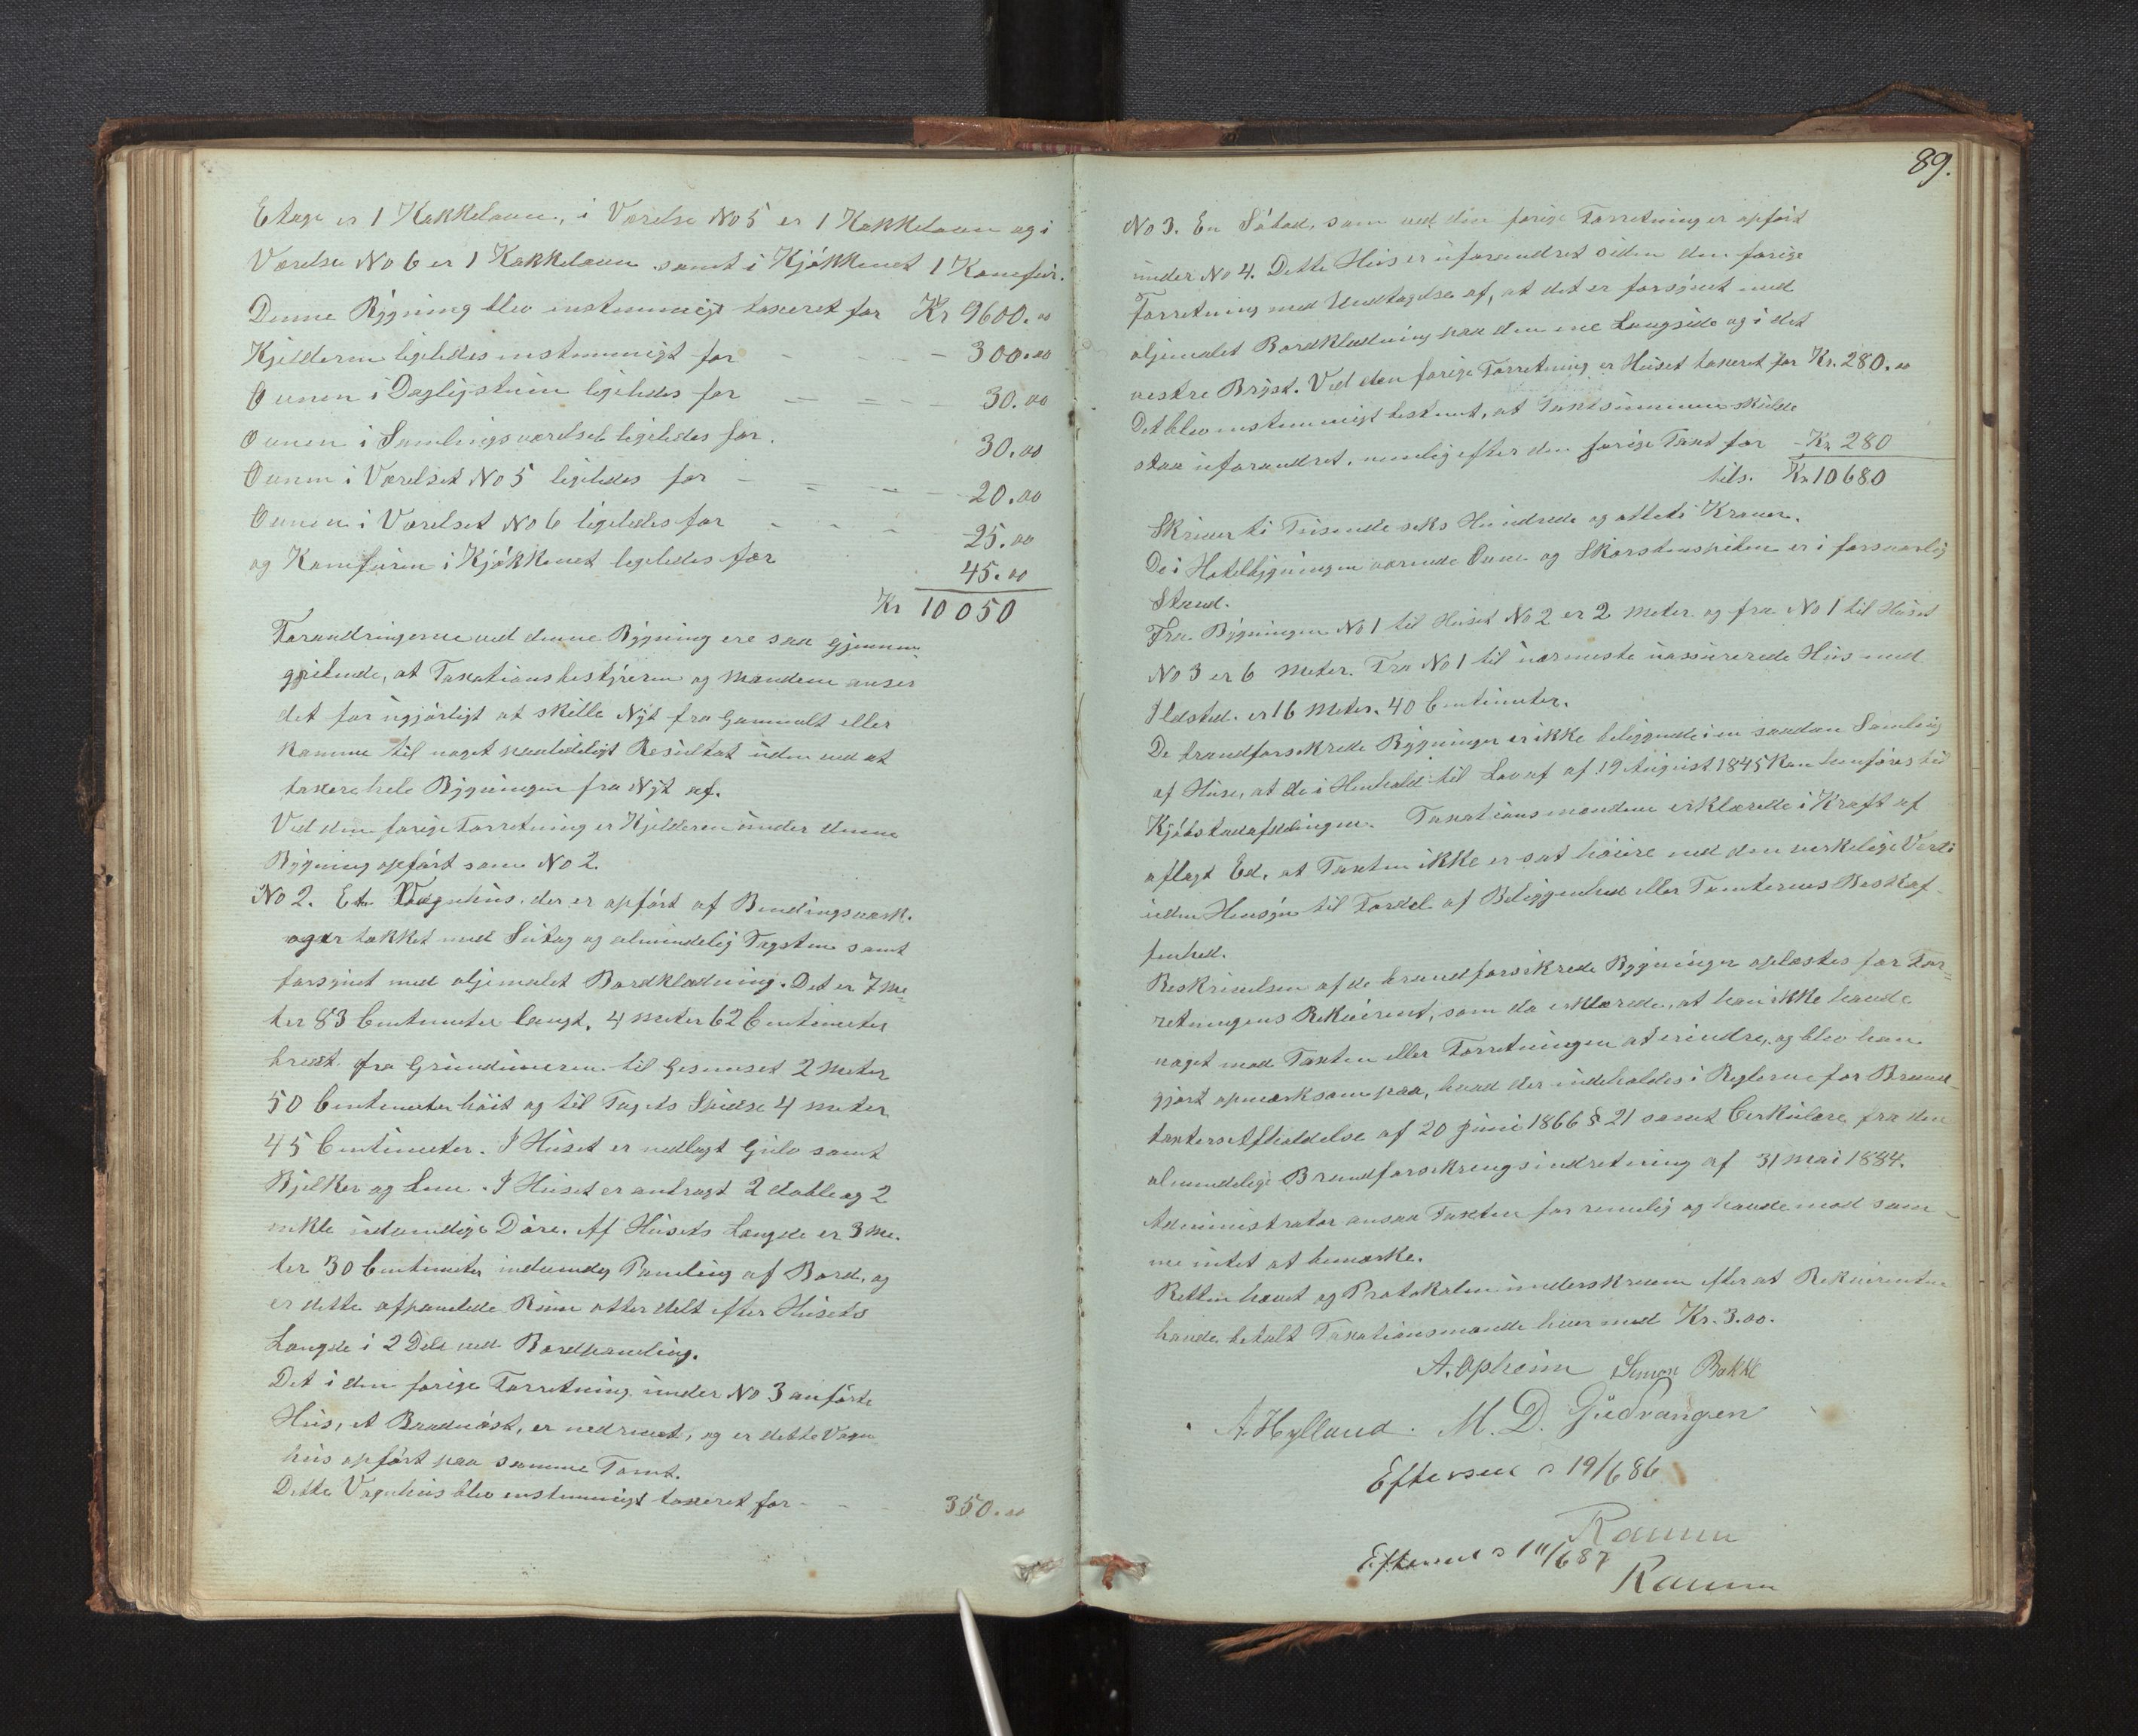 Etage er 1 Kakkelaun, i Værelse No 5 er 1 Kakkelaun og i
Værelse No 6 er 1 Kakkelaun samt i Kjøkkenet 1 Komfür.
Denne Bÿgning blev enstemmigt taxeret for Kr 9600.00
Kjelderen ligeledes enstemmigt for - - - - 300.00
Ovnen i Dagligstuen ligeledes for - - - - 30.00
Ovnen i Samlingsværelset ligeledes for. 30.00
Ovnen i Værelset No 5 ligeledes for - - - - 20.00
Ovnen i Værelset No 6 ligeledes for - - - 25.00
og Komfüren i Kjøkkenet ligeledes for 45.00
Kr 10050
Forandringerne ved denne Bÿgning ere saa gjennem-
gribende, at Taxationsbestÿreren og Mændene anser
det for ugjørligt at skille Nÿt fra Gammelt eller
komme til noget paalideligt Resultat uden ved at
taxere hele Bÿgningen fra Nÿt af.
Ved den forige Forretning er Kjelderen under denne
Bÿgning opført som No 2.
No 2. Et Vognhus, der er opført af Bindingsværk.
og er takket med Sutag og almindelig Tagsten samt
forsÿnet med oljemalet Bordklædning. Det er 7 Me-
ter 83 Centimeter langt, 4 Meter 62 Centimeter
bredt fra Grundmuren til Gesimset 2 Meter
50 Centimeter høit og til Tagets Spidse 4 Meter
45 Centimeter. I Huset er nedlagt Gulv samt
Bjelker og Lem. I Huset er anbragt 2 doble og 2
enkle udvendige Døre. Af Husets Længde er 3 Me-
ter 30 Centimeter indvendig Paneling af Bord, og
er dette afpanelede Rum atter delt efter Husets
Længde i 2 Dele ved Bordpaneling.
Det i den forige Forretning under No 3 anførte
Hus, et Baadnøst, er nedrevet, og er dette Vogn-
hus opført paa samme Tomt.
Dette Vognhus blev enstemmigt taxeret for - - - 350.00
89.
No 3. En Søbod, som ved den forige Forretning er opført
under No 4. Dette Hus er uforandret siden den forige
Forretning med Undtagelse af, at det er forsÿnet med
oljemalet Bordklædning paa den ene Langside og i det
vestre Brÿst. Ved den forige Forretning er Huset taxeret for Kr. 280.00
Det blev enstemmigt bestemt, at Taxtsummen skulde
staa uforandret, nemlig efter den forige Taxt for - Kr 280
tils. Kr 10680
Skriver ti Tusende seks Hundrede og otteti Kroner.
De i Hotelbÿgningen værende Ovne og Skorstenspiben er i forsvarlig
Stand.
Fra Bÿgningen No 1 til Huset No 2 er 2 Meter og fra No 1 til Huset
No 3 er 6 Meter. Fra No 1 til nærmeste uassurerede Hus med
Ildsted er 16 Meter. 40 Centimeter.
De brandforsikrede Bÿgninger er ikke beliggende i en saadan Samling
af Huse, at de i Henhold til Lov af 19 August 1845 kan henføres til
Kjøbstadafdelingen. Taxationsmændene erklærede i Kraft af
aflagt Ed, at Taxten ikke er sat høiere end den virkelige Verdi
uden Hensÿn til Fordel af Beliggenhed eller Tomternes Beskaf-
fenhed.
Beskrivelsen af de brandforsikrede Bÿgninger oplæstes for For-
retningens Rekvirent, som da erklærede, at han ikke havde
noget mod Taxten eller Forretningen at erindre, og blev han
gjort opmærksom paa, hvad der indeholdes i Reglerne for Brand-
taxters Afholdelse af 20 Juni 1866 § 21 samt Cirkulære fra den
almindelige Brandforsikringsindretning af 31 Mai 1884.
Administrator ansaa Taxten for rimelig og havde mod sam-
me intet at bemærke.
Retten hævet og Protokolen underskreven efter at Rekvirenten
havde betalt Taxationsmænde hver med Kr. 3.00.
A. Opheim Simon Bakke
A. Hylland. M. D. Gudvangen
Efterseet 19/6 86
Ramm
Efterseet 11/6 87
Ramm